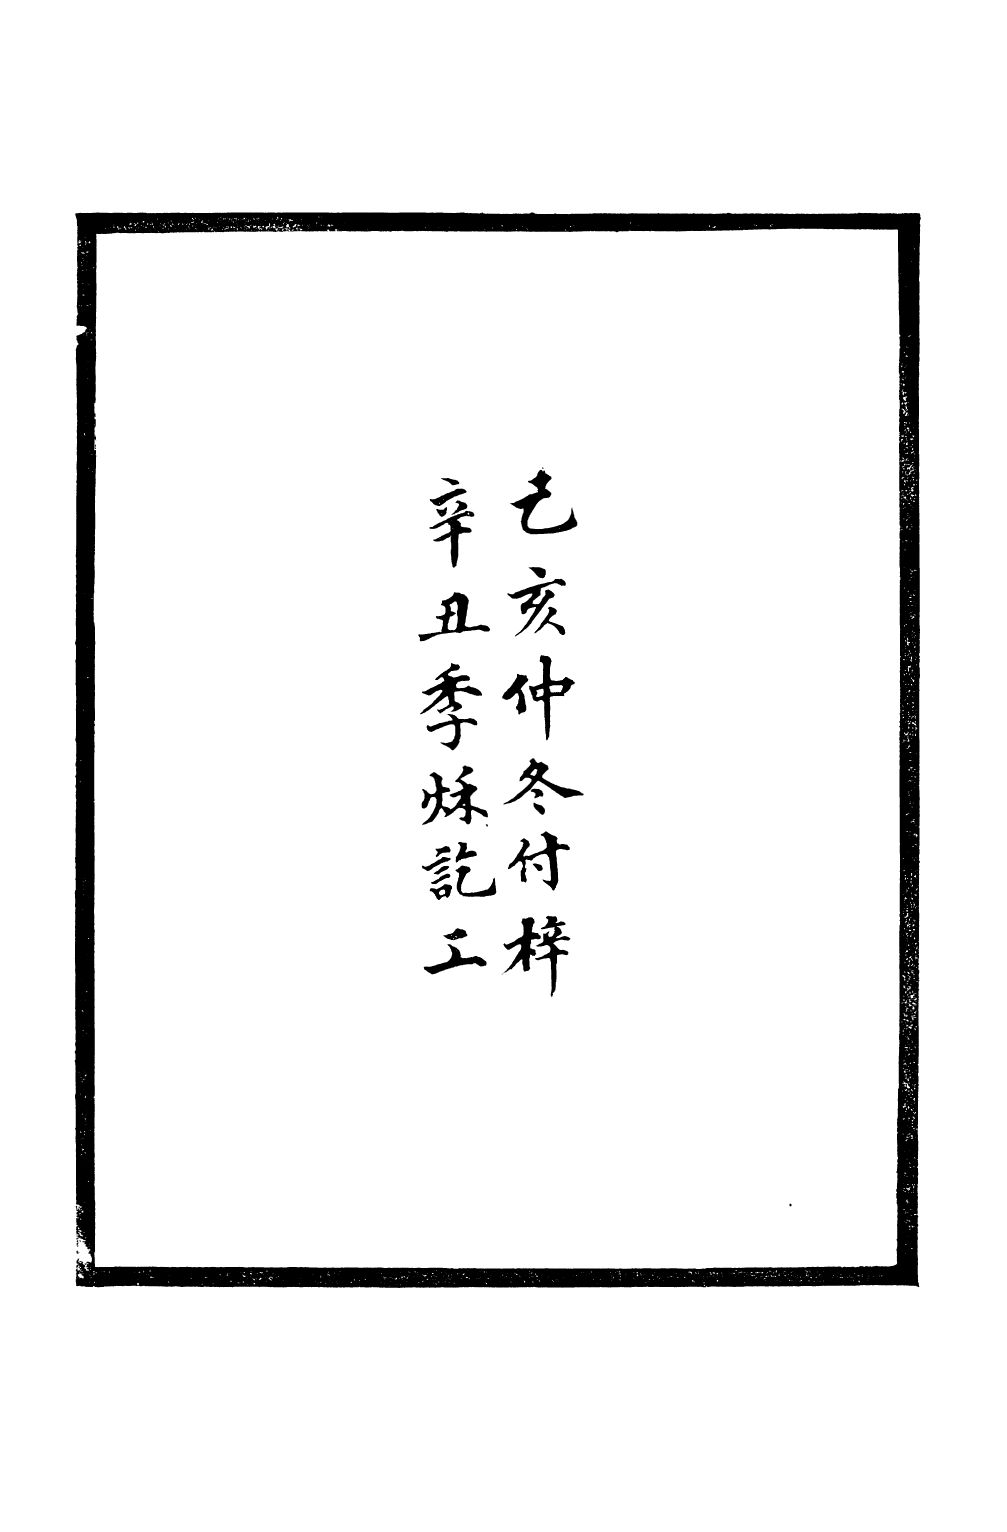 己亥仲冬付梓
辛丑季秌訖工